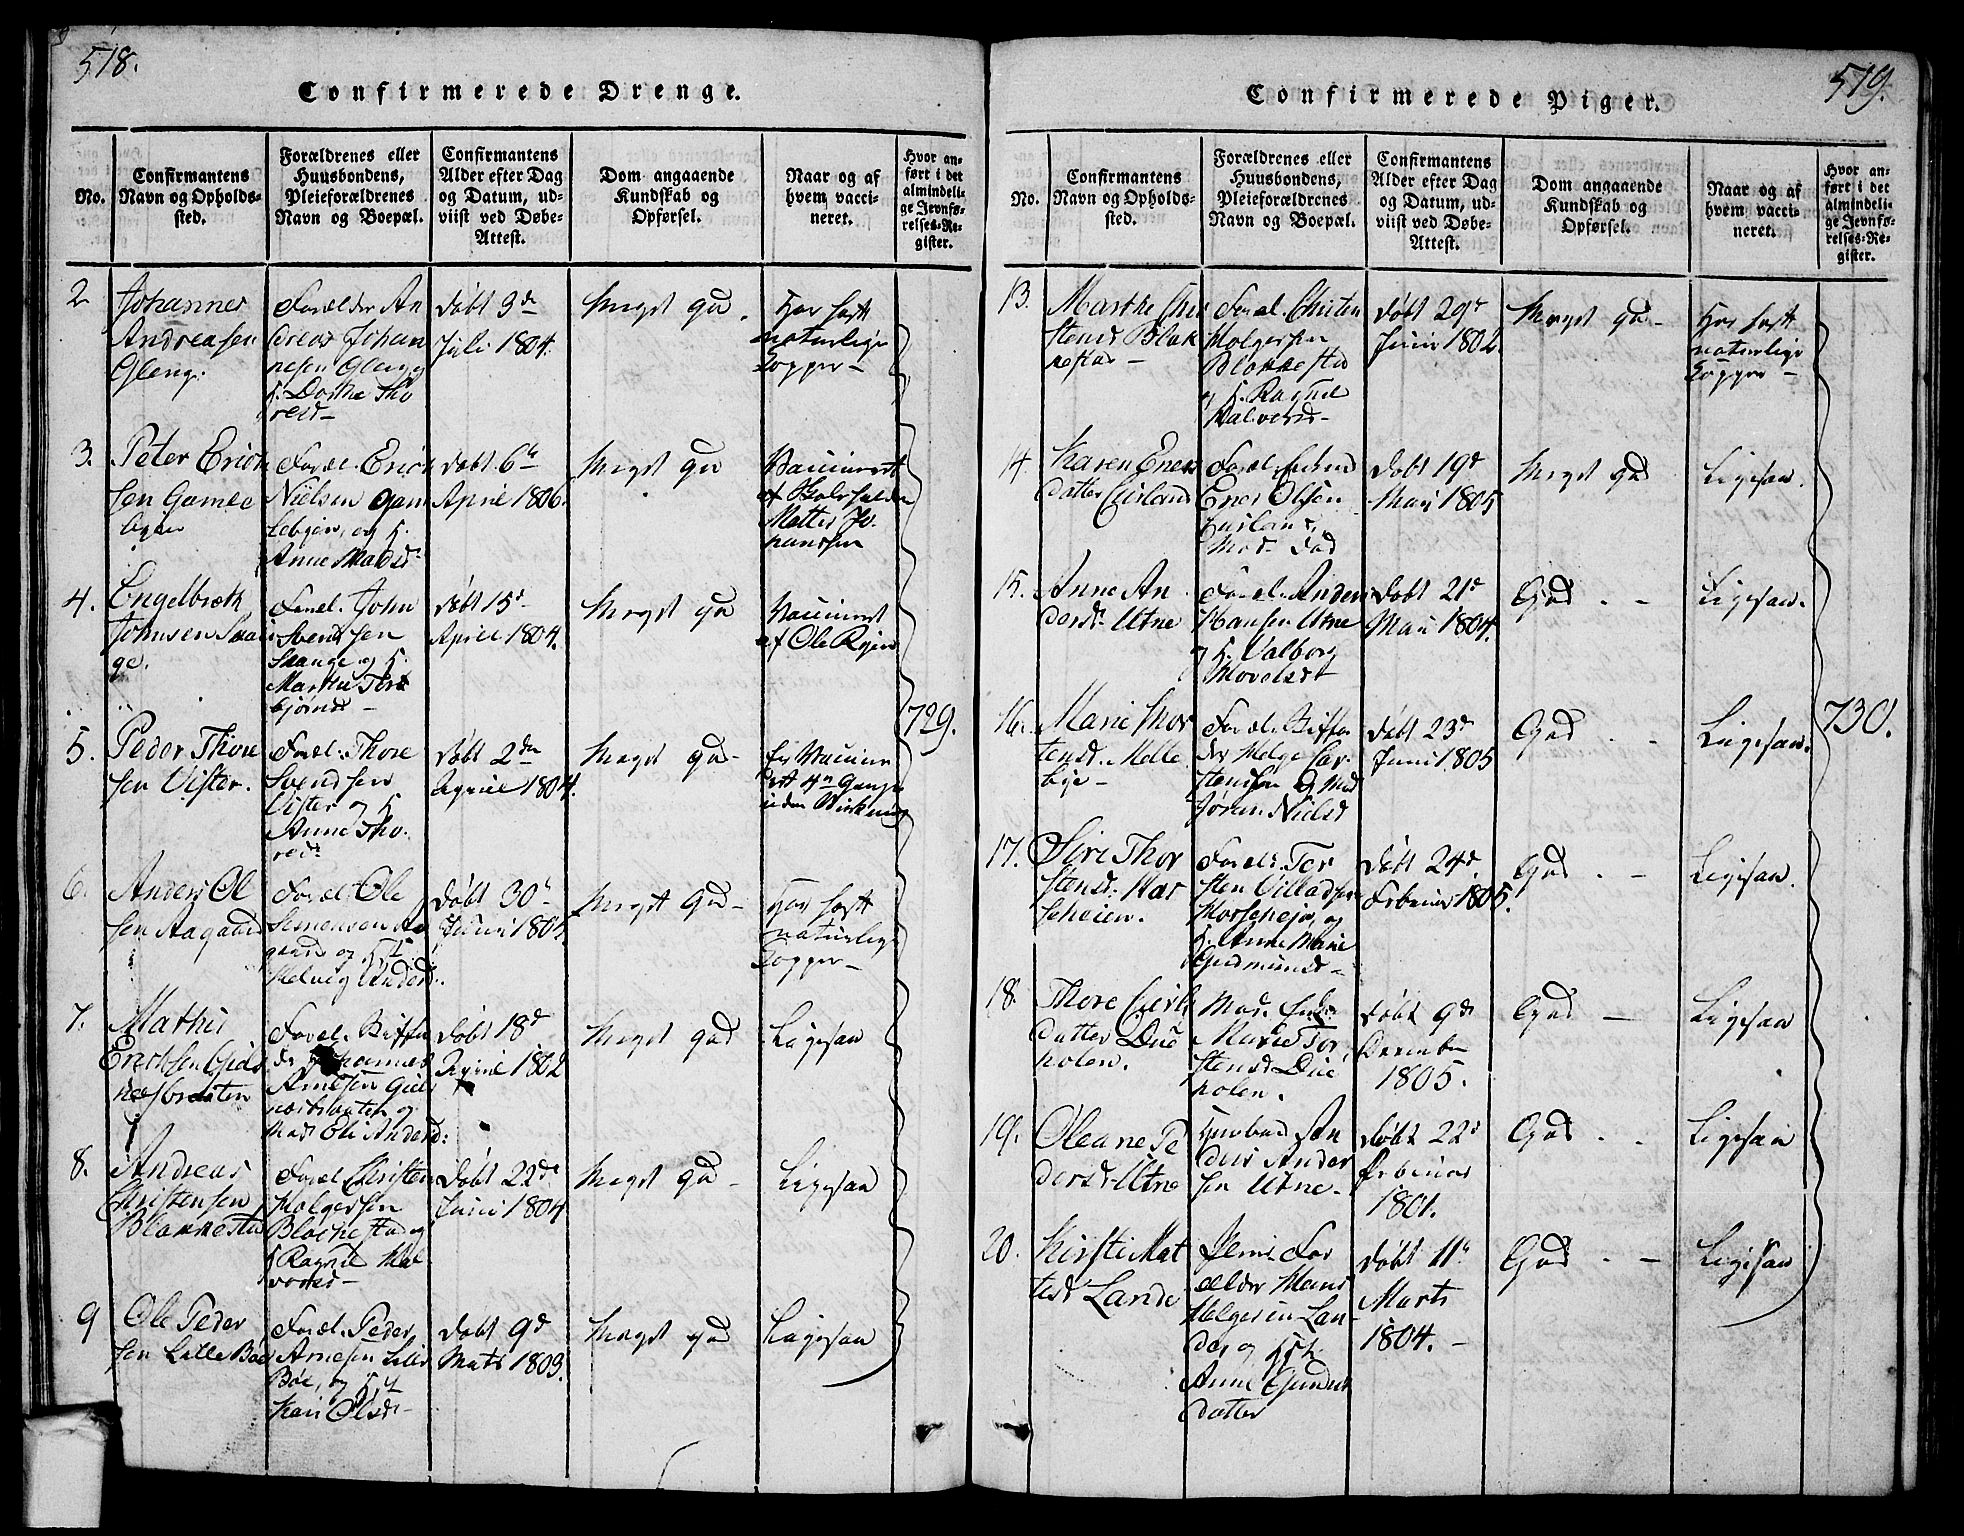 518.
Confirmerede Drenge.
No.
Confirmantens
Navn og Opholds-
sted.
Forældrenes eller
Huusbondens,
Pleieforældrenes
Navn og Boepæl.
Confirmantens
Alder efter Dag
og Datum, ud-
viist ved Døbe-
Attest.
Dom angaaende
Kundskab og
Opførsel.
Naar og af
hvem vacci-
neret.
Hvor an-
ført i det
almindeli-
ge Jevnfø-
relses-Re-
gister.
2
Johannes
Andreasen
Gleng.
Forælder An
dreas Johan
nesen Gleng
Dorthe Tho
resd-
døbt 3de
Juli 1804.
Meget god.
Har havt
naturlige
Kopper-
3.
Peter Erick
sen Gamle
bÿen
Foræl. Erick
Nielsen Gam
lebÿen, og H.
Anne
døbt 6te
April 1806.
Meget god
Vaccineret
af Skoleholder
Matter Jo
hannsen
4.
Engelbreth
Johnsen Skan
ge.
Foræl. John
Svendsen
Skange og H.
Marthe Tor
bjørnsd-
døbt 15d
April 1804.
Meget god
Vaccineret
af Ole Ryen
729.
5.
Peder Thore
sen Vister.
Foræl. Thore
Svendsen
Vister og H.
Anne Tho.
resd.
døbt 2den
April 1804.
Meget god-
er Vaccine
ret 4re Gange
uden Virkning
6.
Anders Ol
sen Aagaard
Foræl. Ole
Simensen Aa
gaard og H.
Helvig Anders
døbt 30d
Juni 1805.
Meget god-
Har havt
naturlige
Kopper-
7.
Mathis
Ericksen
Foræl.
Johannes
Arnesen
og
Mod. Eli Andersd:
døbt 18d
April 1802
Meget god
Ligesaa
8.
Andreas
Christensen
Blakkestad
Foræl. Christen
Holgersen
Blackestad og
H. Ragnil Hal
vorsd-
døbt 22de
Juni 1804
Meget god-
Ligesaa
9
Ole Peder
sen Lille Bøe
Foræl. Peder
Arnesen Lille
Bøe, og H.
Kari Olsd-
døbt 9d
Mats 1803.
Meget god
Ligesaa
519.
Confirmerede Piger.
No.
Confirmantens
Navn og Opholds-
sted.
Forældrenes eller
Huusbondens,
Pleieforældrenes
Navn og Boepæl.
Confirmantens
Alder efter Dag
og Datum, ud-
viist ved Døbe-
Attest.
Dom angaaende
Kundskab og
Opførsel.
Naar og af
hvem vacci-
neret.
Hvor an-
ført i det
almindeli-
ge Jevnfø-
relses-Re-
gister.
13.
Marthe Chri
stensd Blak
kestad-
Foræl. Christen
Holgersen
Blakkestad
og H. Ragnil
Halvorsd-
døbt 29d
Juni 1802.
Meget god-
Har havt
naturlige
Kopper-
14.
Karen Ener
datter
Foræl.
Ener Olsen
døbt 19d
Maÿ 1805
Meget god
Ligesaa.
15.
Anne An
dersd. Utne
Foræl. Anders
Hansen Utne
og H. Valborg
døbt 21d
Maii 1804.
God - -
Ligesaa.
16.
Marie Mor
tensd. Melle
bÿe-
Foræl.
Helge Tor
stensen og Mod
Jøran Nielsd
døbt 23d
Juni 1805
God - -
Ligesaa.
730.
17.
Siri Thor
stensd. Hor
seheien.
Foræl. Tor
sten Villadsen
Horseheja, og
H. Anne Marie
Gudmundsd-
døbt 24d
Februar 1805.
God - -
Ligesaa.
18.
Thore
datter Due
holen.
Mod.
Marie Tor
stensd. Due
holen.
døbt 9de
December
1805.
God -
Ligesaa
19.
Oleane Pe
dersd Utne
Huusbond An
ders Ander
sen Utne-
døbt 22d
Februar
1801.
God - -
Ligesaa
20.
Kirsti Mat
tisd Lande
For
ælder Hans
Helgesen Lan
de, og
Anne Gunder
datter
døbt 11te
Marts
1804.-
God - -
Ligesaa